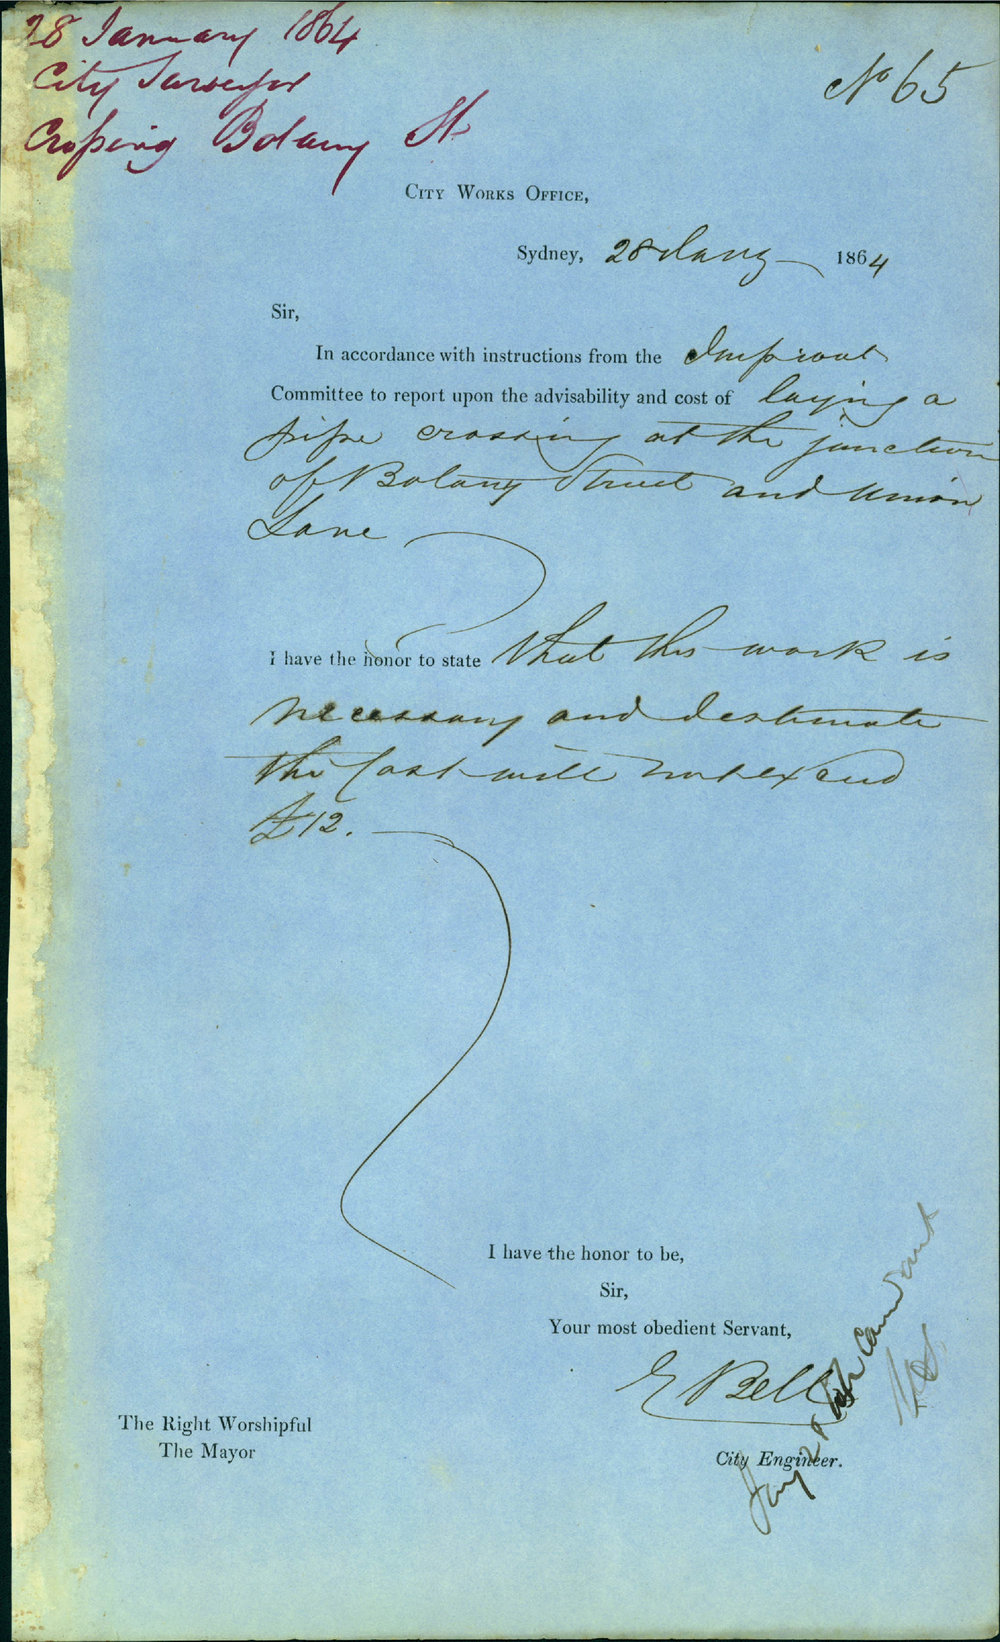 28 January 1864
City Surveyor
Crossing Botany St.
No 65
City Works Office,
Sydney, 28 Jany 1864
Sir,
In accordance with instructions from the Improvmt
Committee to report upon the advisability and cost of laying a
pipe crossing at the junction
of Botany Street and Union
Lane
I have the honor to state that this work is
necessary and I estimate
the Cost will not exceed
£12.
I have the honor to be,
Sir,
Your most obedient Servant,
E Bell
City Engineer.
The Right Worshipful
The Mayor
Jany